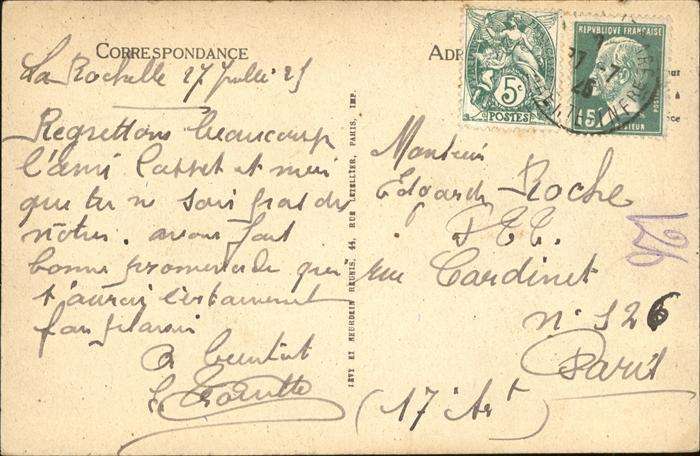 CORRESPONDANCE
La Rochelle 27 Juillet 25
Regrettons beaucoup
l'ami et moi
que tu ne sois pas des
nôtres. avons fait
bonne promenade qui
t'aurai certainement
fait plaisir
A bientôt
LEVY ET NEURDEIN REUNIS, 44, RUE LETELLIER, PARIS, IMP.
ADR
5c
POSTES
REPUBLIQUE FRANÇAISE
15
Monsieur
Edgard Roche
rue Cardinet
n° 126
Paris
(17e Art)